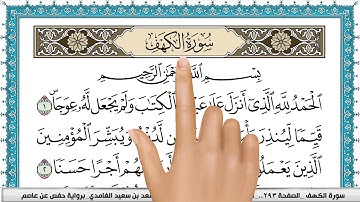 سورة الكهف
بسم الله الرحيم
الْحَمْدُ لِلَّهِ الَّذِي أَنزَلَ الْكِتَٰبَ وَلَمْ يَجْعَل لَّهُۥ عِوَجَا ١
قَيِّمًا لِّيُنذِرَ لَّدُنْهُ وَيُبَشِّرَ الْمُؤْمِنِينَ
الَّذِينَ أَجْرًا حَسَنًا ٢
سورة الكهف _ الصفحة ٢٩٣ سعد بن سعيد الغامدي_ برواية حفص عن عاصم